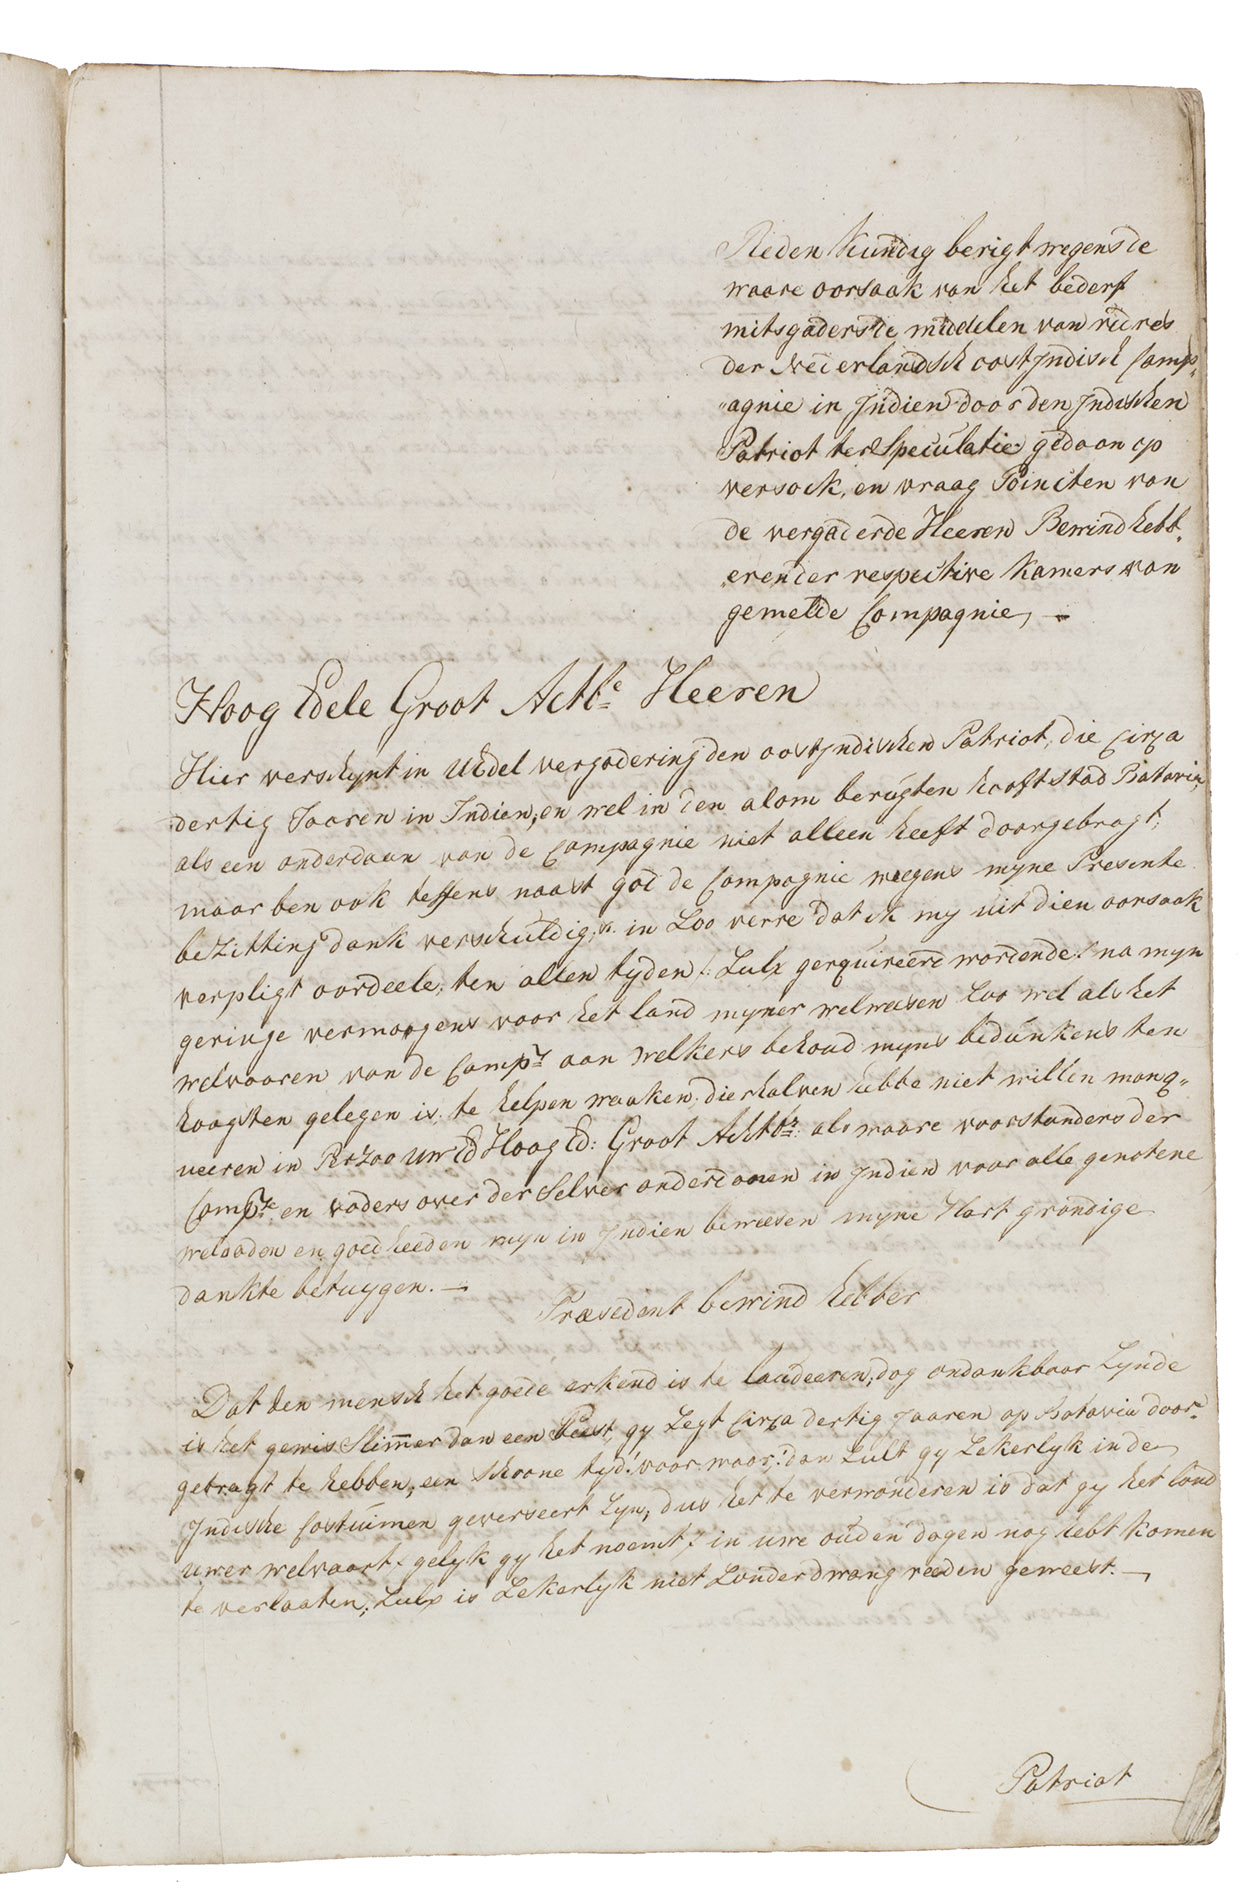 Reden Kundig berigt wegens de
waare oorsaak van het bederf
mitsgaders de middelen van redres
der Nederlandsch oost Jndisch Comp„
„agnie in Jndien door den Jndischen
Patriot ter Speculatie gedaan op
versoek, en vraag Poincten van
de vergaderde Heeren Bewindhebb„
„eren der respective Kamers van
gemelde Compagnie, —
Hoog Edele Groot Achtb:e Heeren
Hier verschynt in UEdel vergadering den oost Jndischen Patriot, die Circa
dertig Jaaren in Indien, en wel in den alom berugten hooft stad Batavia,
als een onderdaan van de Compagnie niet alleen heeft doorgebragt,
maar ben ook teffens naast god de Compagnie weegens myne Presente
bezitting dank verschuldig, in Zoo verre dat ik my uit dien oorsaak
verpligt oordeele, ten allen tyden /: Zulx gerquireerd wordende :/ na myn
geringe vermoogens voor het land myner welweesen Zoo wel als het
welvaaren van de Comp:e aan welkers behoud myns bedunkens ten
hoogsten gelegen is, te helpen waaken, dierhalven hebbe niet willen manq„
ueeren in UwEd Hoog Ed: Groot Achtb:r als waare voorstanders der
Comp:e en vaders over der Selver onderdanen in Jndien voor alle genotene
weldaden en goedheeden myn in Jndien beweesen myne Hart grondige
dankte betuygen. —
Præsedent bewind hebber
Dat den mensch het goede erkend is te laudeeren, dog ondankbaar Zynde
is het gewis Slimmer dan een Beest, gy Zegt Circa dertig Jaaren op Batavia door„
gebragt te hebben, een schoone tyd! voor waar! dan Zult gy Zekerlyk in de
Jndische Costuimen geverseert Zyn, dus het te verwonderen is dat gy het land
uwer welvaart /: gelyk gy het noemt :/ in uwe ouden dagen nog hebt komen
te verlaaten, Zulx is Zekerlyk niet Zonder dwang reeden geweest. —
Patriot